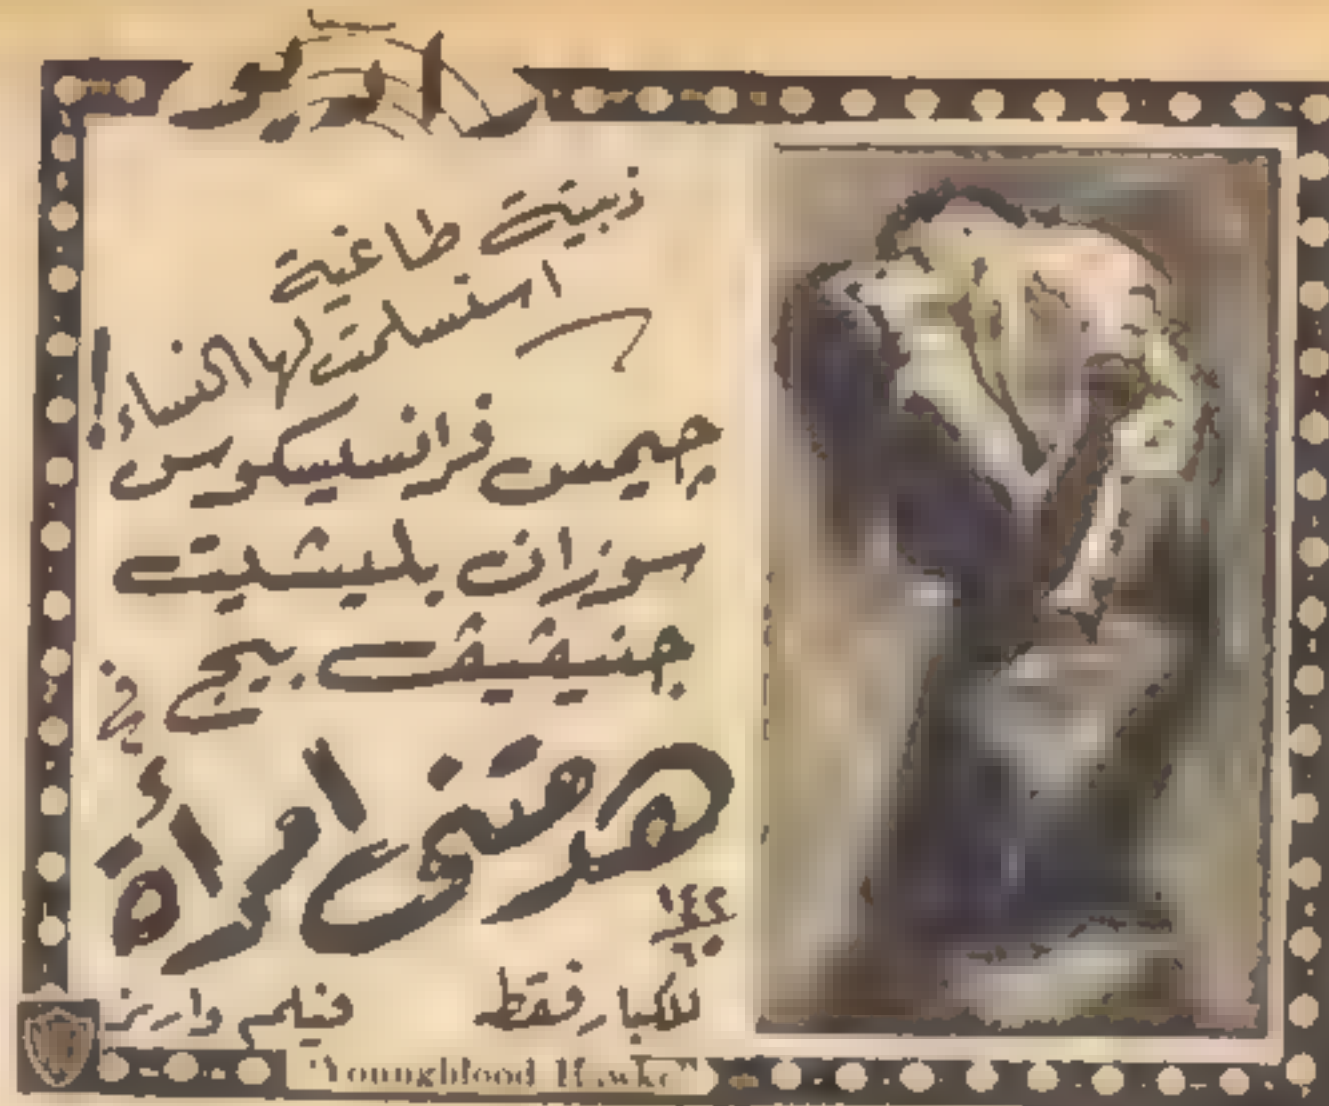 راديو
ذبية طاغية
استسلمت لها النساء!
چيمس فرانسيسكوس
سوزان بليشيت
جنيڤيڤ بيج
في
هدمتني امرأة
للكبار فقط
فيلم وارنر
"Youngblood Hawke"